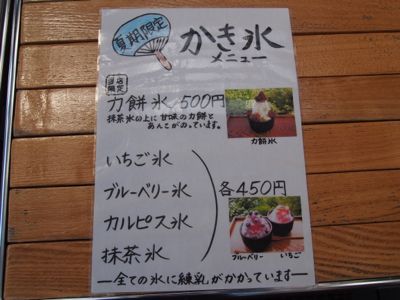 夏期限定
かき氷
メニュー
当店
限定
力餅氷/500円
抹茶氷の上に甘味の力餅と
あんこがのっています。
力餅氷
いちご氷
ブルーベリー氷
カルピス氷
抹茶氷
各450円
ブルーベリー いちご
―全ての氷に練乳がかかっています―